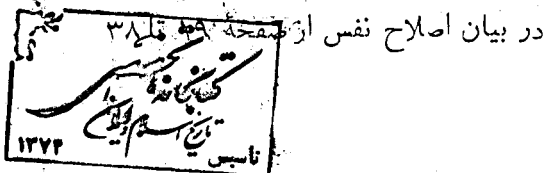 در بیان اصلاح نفس از صفحهٔ ۹ تا ۳۸
کتابخانه
تاریخ اسلام و ایران
تاسیس ۱۳۷۴